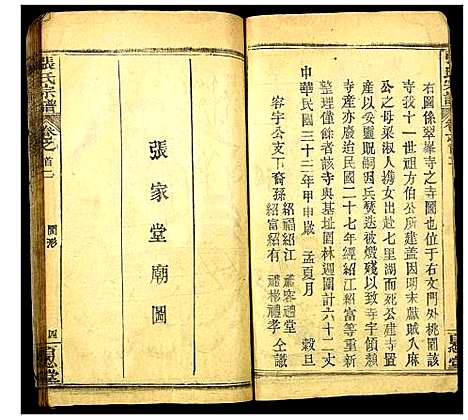 右圖係翠峯寺之寺圖也位于右文門外桃園該
寺我十一世祖方伯公所建蓋因明末獻賊入麻
公與母梁淑人攜女出赴七里湖而死公建寺置
產以妥靈貺嗣因兵燹迭被燬殘以致寺宇傾頹
寺產亦廢迨民國二十七年經紹江紹富等重新
整理僅餘者該寺與基址園林週圍計六十二丈
中華民國三十三年甲申歲 孟夏月 穀旦
容宇公支下裔孫紹福紹江 禮容禮堂
紹富紹有 禮彬禮孝 仝識
張氏宗譜
卷之首二
張家堂廟圖
張氏宗譜
卷之首二
圖形
四
百忍堂